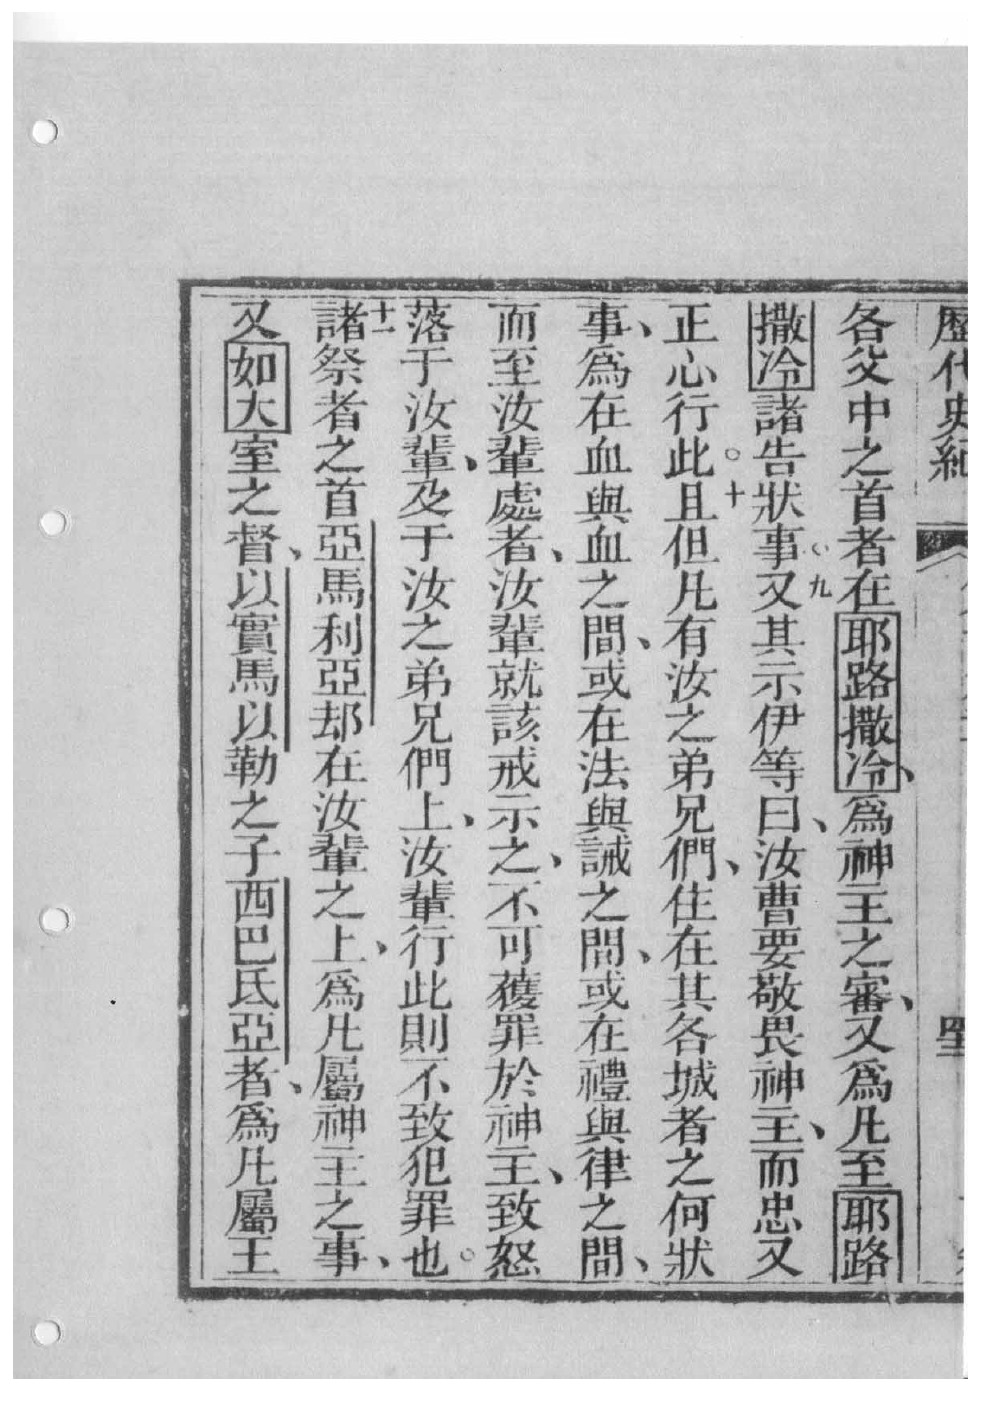 歷代史紀
各父中之首者在耶路撒冷、爲神主之審、又爲凢至耶路
撒冷諸告狀事。九又其示伊等曰、汝曹要敬畏神主、而忠又
正心行此。十且但凢有汝之弟兄們、住在其各城者之何狀
事、爲在血與血之間、或在法與誡之間、或在禮與律之間、
而至汝輩處者、汝輩就該戒示之、不可獲罪於神主、致怒
落于汝輩、及于汝之弟兄們上、汝輩行此則不致犯罪也。
十一諸祭者之首亞馬利亞却在汝輩之上、爲凢屬神主之事、
又如大室之督、以實馬以勒之子西巴氐亞者、爲凢屬王